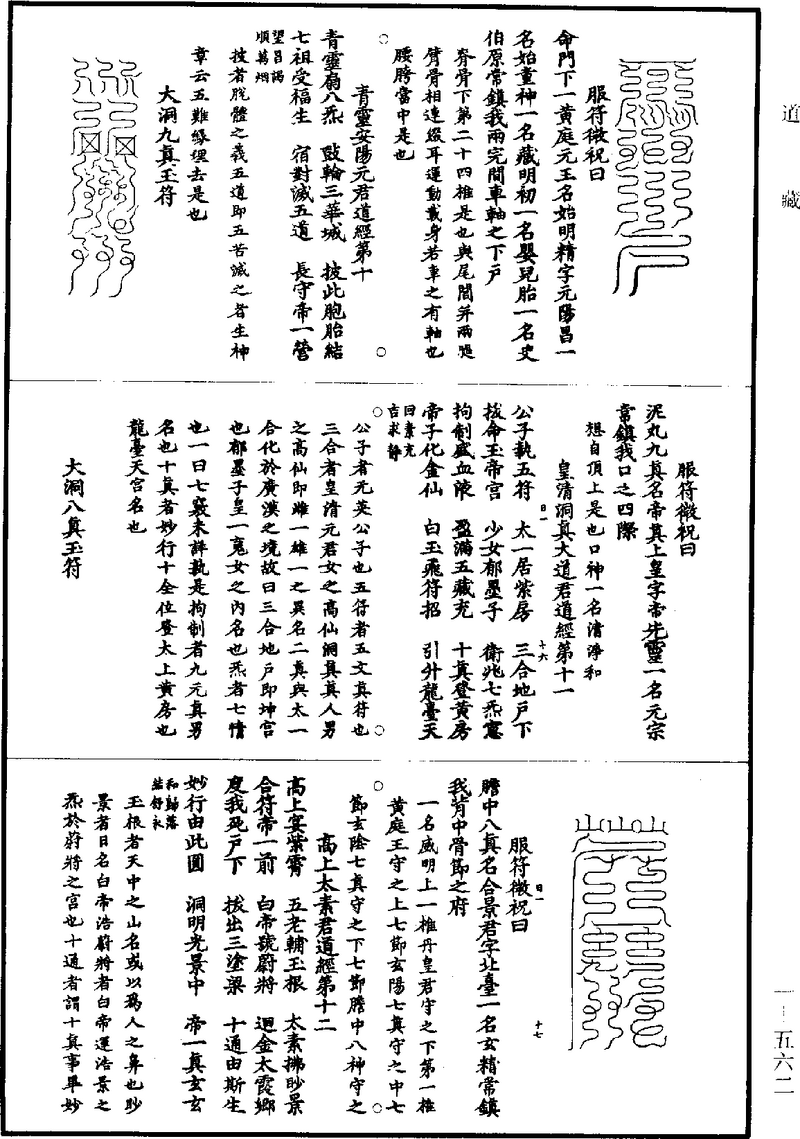 道藏
服符微祝曰
命門下一黃庭元王名始明精字元陽昌一
名始童神一名藏明初一名嬰兒胎一名史
伯原常鎮我兩完間車軸之下戶
脊骨下第二十四椎是也與尾閭并兩
臂骨相連綴耳運動載身若車之有軸也
腰胯當中是也
青靈安陽元君道經第十
青靈扇八炁 鼓輪三華城 披此胞胎結
七祖受福生 宿對滅五道 長守帝一營
望昌謁
順萬烟
披者脫體之義五道即五苦滅之者生神
章云五難緣理去是也
大洞九真玉符
服符微祝曰
泥丸九真名帝真上皇字帝先靈一名元宗
常鎮我口之四際
想自頂上是也口神一名清淨和
皇清洞真大道君道經第十一
公子執五符 太一居紫房 三合地戶下
拔命玉帝宮 少女郁墨子 衛兆七炁竅
拘制盛血液 盈滿五藏充 十真登黃房
帝子化金仙 白玉飛符招 引升龍臺天
曰素充
吉求靜
公子者无英公子也五符者五文真符也
三合者皇清元君女之高仙洞真真人男
之高仙即雌一雄一之異名二真與太一
合化於廣漢之境故曰三合地戶即坤宮
也郁墨子皇一魂女之內名也炁者七情
也一曰七竅未詳孰是拘制者九元真男
名也十真者妙行十全位登太上黃房也
龍臺天宮名也
大洞八真玉符
服符微祝曰
膽中八真名合景君字北臺一名玄精常鎮
我背中骨節之府
一名威明上一椎丹皇君守之下第一椎
黃庭王守之上七節玄陽七真守之中七
節玄陰七真守之下七節膽中八神守之
高上太素君道經第十二
高上宴紫霄 五老輔玉根 太素拂眇景
合符帝一前 白帝號蔚將 迴金太霞鄉
度我死戶下 拔出三塗梁 十通由斯生
妙行由此圓 洞明光景中 帝一真玄玄
和歸落
結舒永
玉根者天中之山名或以為人之鼻也眇
景者日名白帝浩蔚將者白帝運浩景之
炁於蔚將之宮也十通者謂十真事畢妙
一—五六二